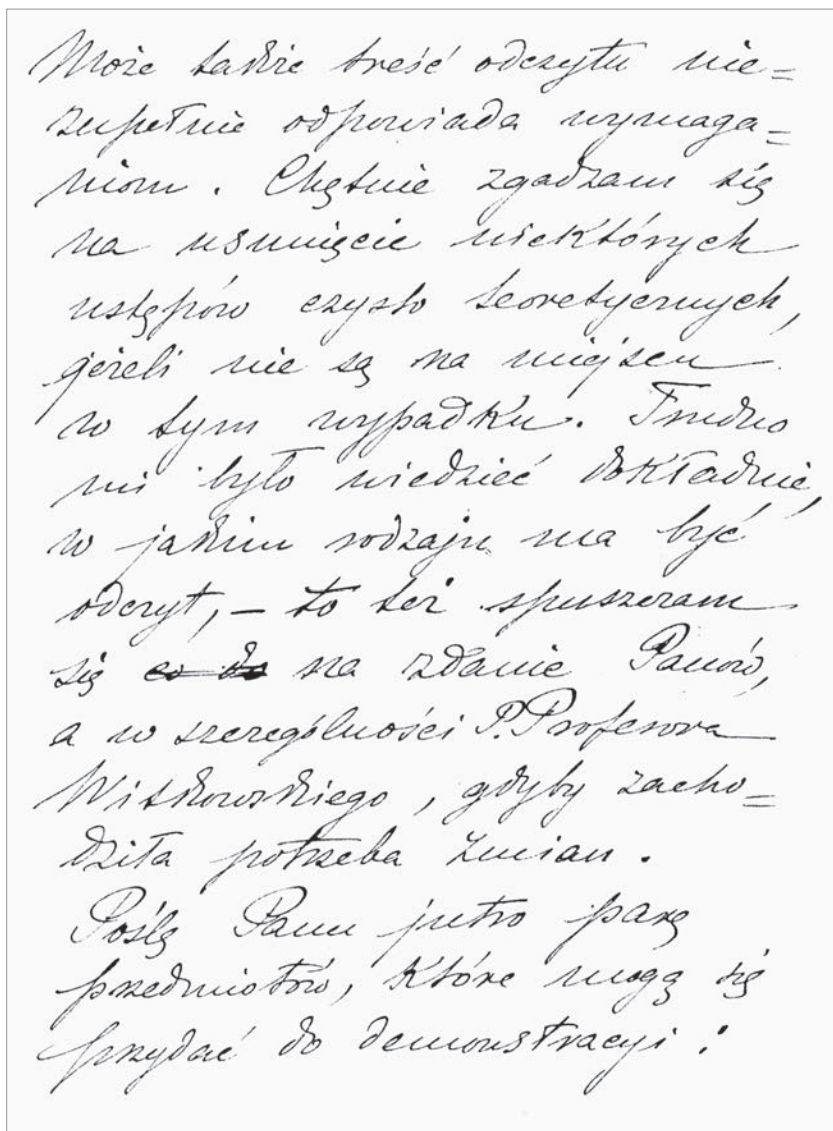 Może także treść odczytu nie=
zupełnie odpowiada wymaga=
niom. Chętnie zgadzam się
na usunięcie niektórych
ustępów czysto teoretycznych,
jeżeli nie są na miejscu
w tym wypadku. Trudno
mi było wiedzieć dokładnie,
w jakim rodzaju ma być
odczyt, – to też spuszczam
się co do na zdanie Panów,
a w szczególności P. Profesora
Witkowskiego, gdyby zacho=
dziła potrzeba zmian.
Poślę Panu jutro parę
przedmiotów, które mogą się
przydać do demonstracyi: